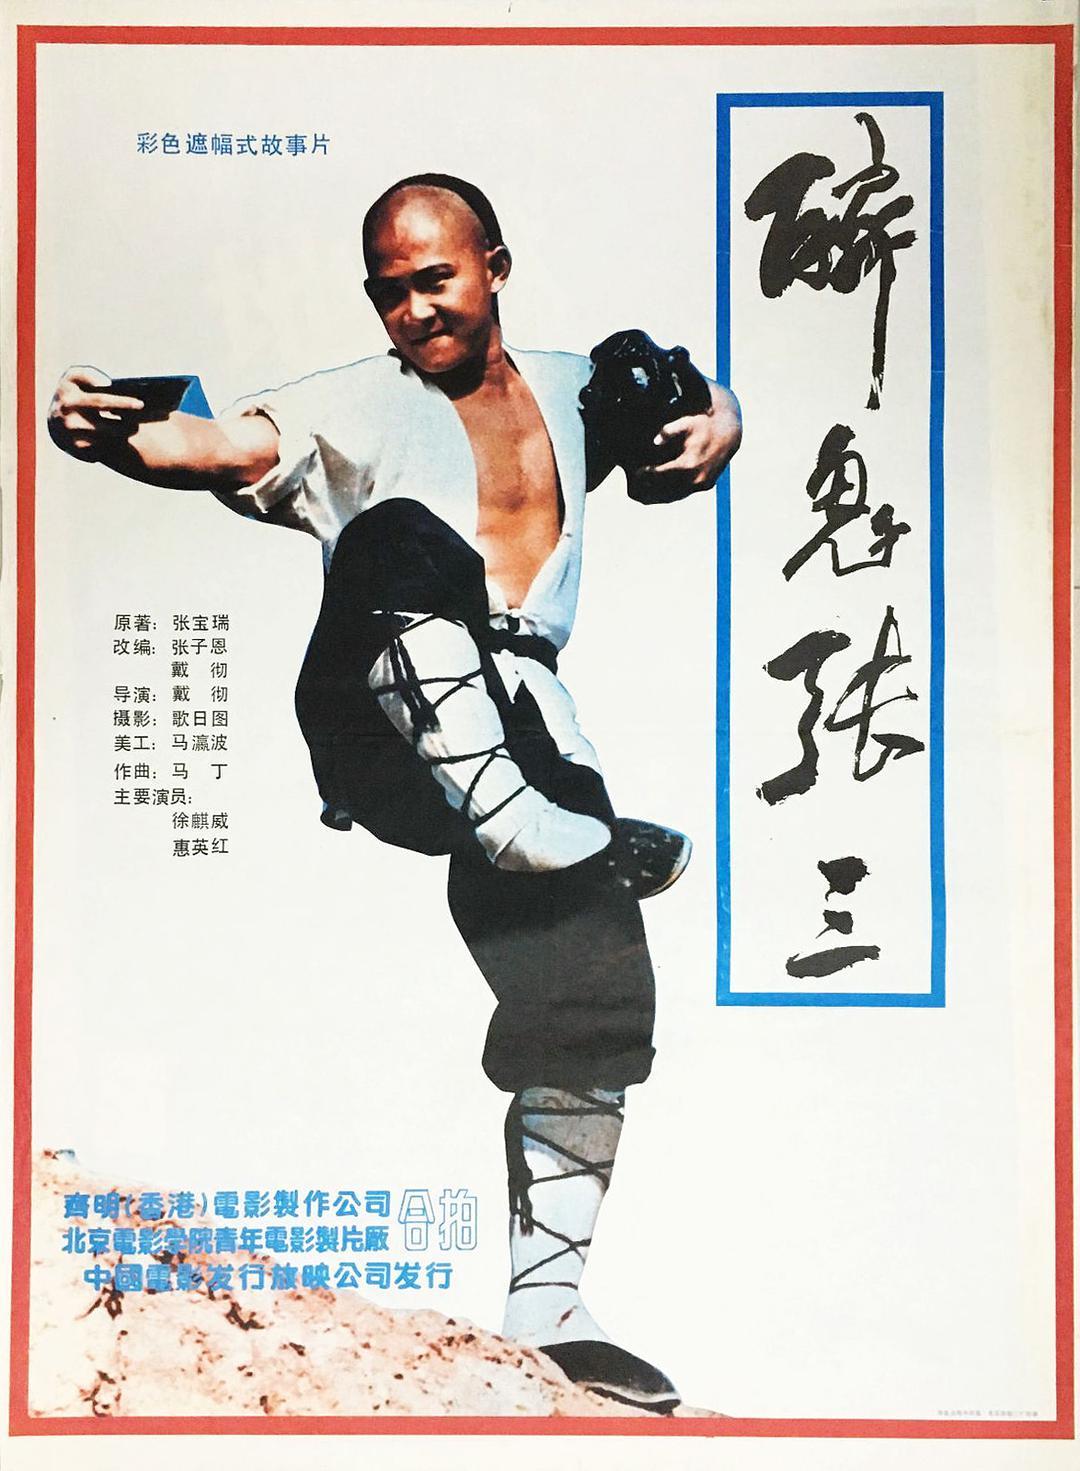 彩色遮幅式故事片
醉鬼张三
原著：张宝瑞
改编：张子恩
戴 彻
导演：戴 彻
摄影：歌日图
美工：马瀛波
作曲：马 丁
主要演员：
徐麒威
惠英红
齊明(香港)電影製作公司
北京電影學院青年電影製片廠
合拍
中國電影发行放映公司发行